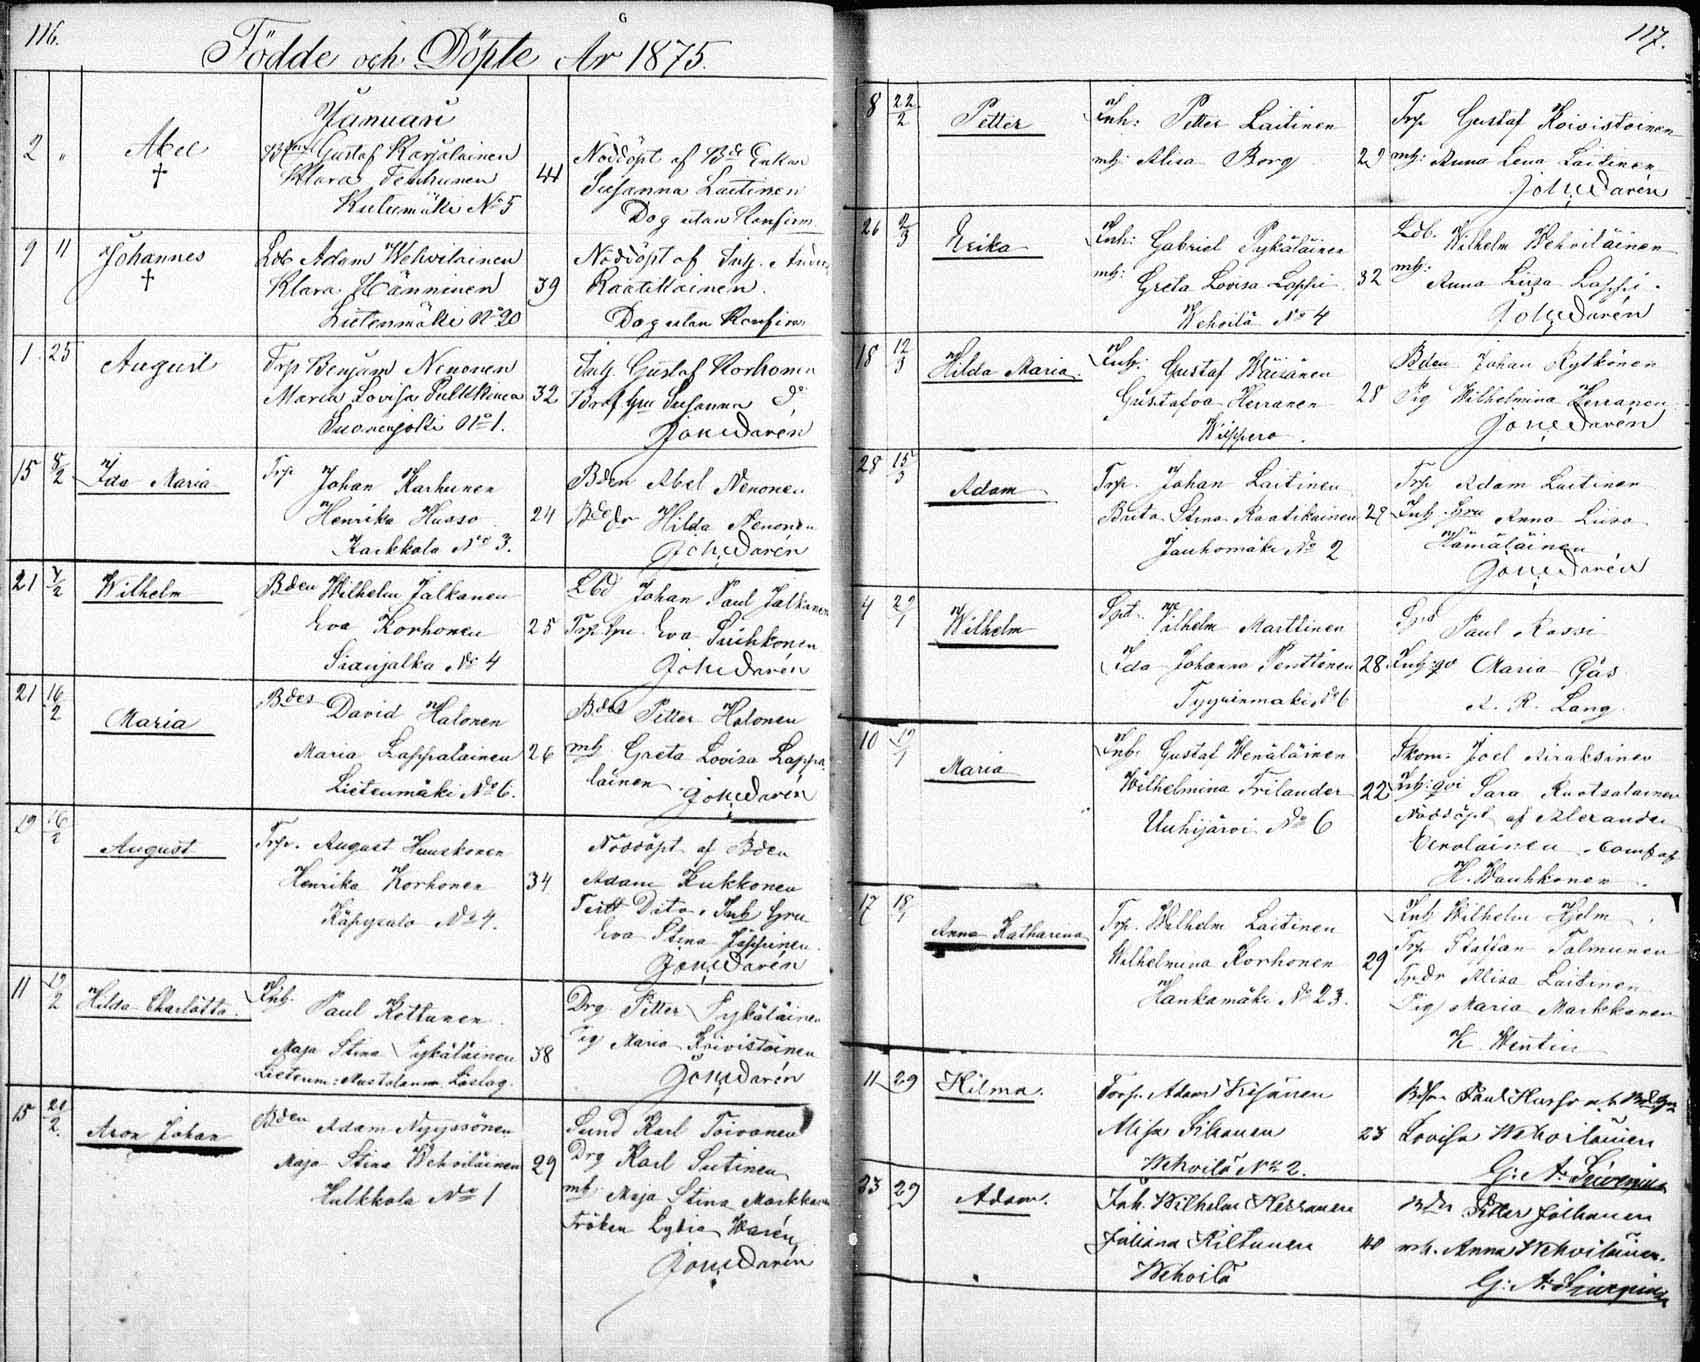 116.
Födde och Döpte År 1875.
Januari
2 " Abel † Gustaf Karjalainen
Klara Tenhunen 44
Kulumäki No 5
Nöddöpt af Bde Enkan
Susanna Laitinen
Dog utan Konfirm
9 11 Johannes † Lob Adam Wehviläinen
Klara Hänninen 39
Lietenmäki No 20
Nöddöpt af Inh.
Raatikainen.
Dog utan Konfirm
1 25 August Trp Benjam Nenonen
Maria Lovisa Pulkkinen 32
Suonenjoki No 1.
Inh Gustaf Korhonen
Susanna do
Joh. Warén
15 8/2 Ida Maria Trp Johan Karhunen
Henrika Husso 24
Karkkala No 3.
Bden Abel Nenonen
Bdedr Hilda Nenonen
Joh. Warén
21 9/2 Wilhelm Bden Wilhelm Jalkanen
Eva Korhonen 25
Sianjalka No 4
Johan Paul Jalkanen
Trp hru Eva Suihkonen
Joh. Warén
21 16/2 Maria Bdes David Halonen
Maria Lappalainen 26
Lietenmäki No 6.
Bdes Petter Halonen
mh Greta Lovisa Lappa-
lainen
Joh. Warén
29 16/2 August Trp. August Huuskonen
Henrika Korhonen 34
No 4.
Nöddöpt af Bden
Adam Kukkonen
Test Dito, Inh hru
Eva Stina Jäppinen.
Joh. Warén
11 19/2 Hilda Charlotta. Inh. Paul Kettunen
Maja Stina Pykäläinen 38
Drg Petter Pykäläinen
Pig Maria Koivistoinen
Joh. Warén
15 21/2. Aron Johan Bden Adam Nyyssönen
Maja Stina Wehviläinen 29
Hulkkola No 1
Karl Toivanen
Drg Karl Sutinen
mh. Maja Stina Markkanen
Fröken Lydia Warén
Joh. Warén
117.
8 22/2 Petter Inh: Petter Laitinen
mh: Alisa Borg 29
Trp Gustaf Koivistoinen
mh: Anna Lena Laitinen
Joh. Warén
26 2/3 Erika Inh: Gabriel Pykäläinen
mh: Greta Lovisa Lappi 32
Wehvilä No 4
Lob. Wilhelm Wehviläinen
mh: Anna Liisa Lappi.
Joh. Warén
18 12/3 Hilda Maria. Inh: Gustaf Wäisänen
Gustafva Herranen 28
Wippero.
Bden Johan Rytkönen
Pig Wilhelmina Herranen
Joh. Warén
28 15/3 Adam Trp. Johan Laitinen
Brita Stina Raatikainen 29
Jauhomäki No 2
Trp Adam Laitinen
Inh. hru Anna Liisa
Hämäläinen
Joh. Warén
4 29/1 Wilhelm Wilhelm Marttinen
Ida Johanna Penttinen 28
Tyyrinmäki No 6
Paul Rossi
Maria Gås
A. R. Lang.
10 19/1 Maria Inh. Gustaf Wenäläinen
Wilhelmina Frilander 22
Uuhijärvi No 6
Skom. Joel Airaksinen
Sara Ruotsalainen
Nöddöpt af Alexander
H. Wauhkonen.
17 18/1 Anna Katharina Trp. Wilhelm Laitinen
Wilhelmina Korhonen 29
Hankamäki No 23.
Inh Wilhelm Hjelm
Trp Staffan Talmunen
Trdr Alisa Laitinen
Pig Maria Markkanen
K. Wentin
11 29 Hilma. Torp. Adam Kejonen
Alisa Sihvonen 23
Wehvilä No 2.
Paul Husso
Lovisa Wehviläinen
23 29 Adam. Inh. Wilhelm Herranen
Juliana Kiltunen 40
Wehvilä
Petter Jalkanen
mh. Anna Wehviläinen.